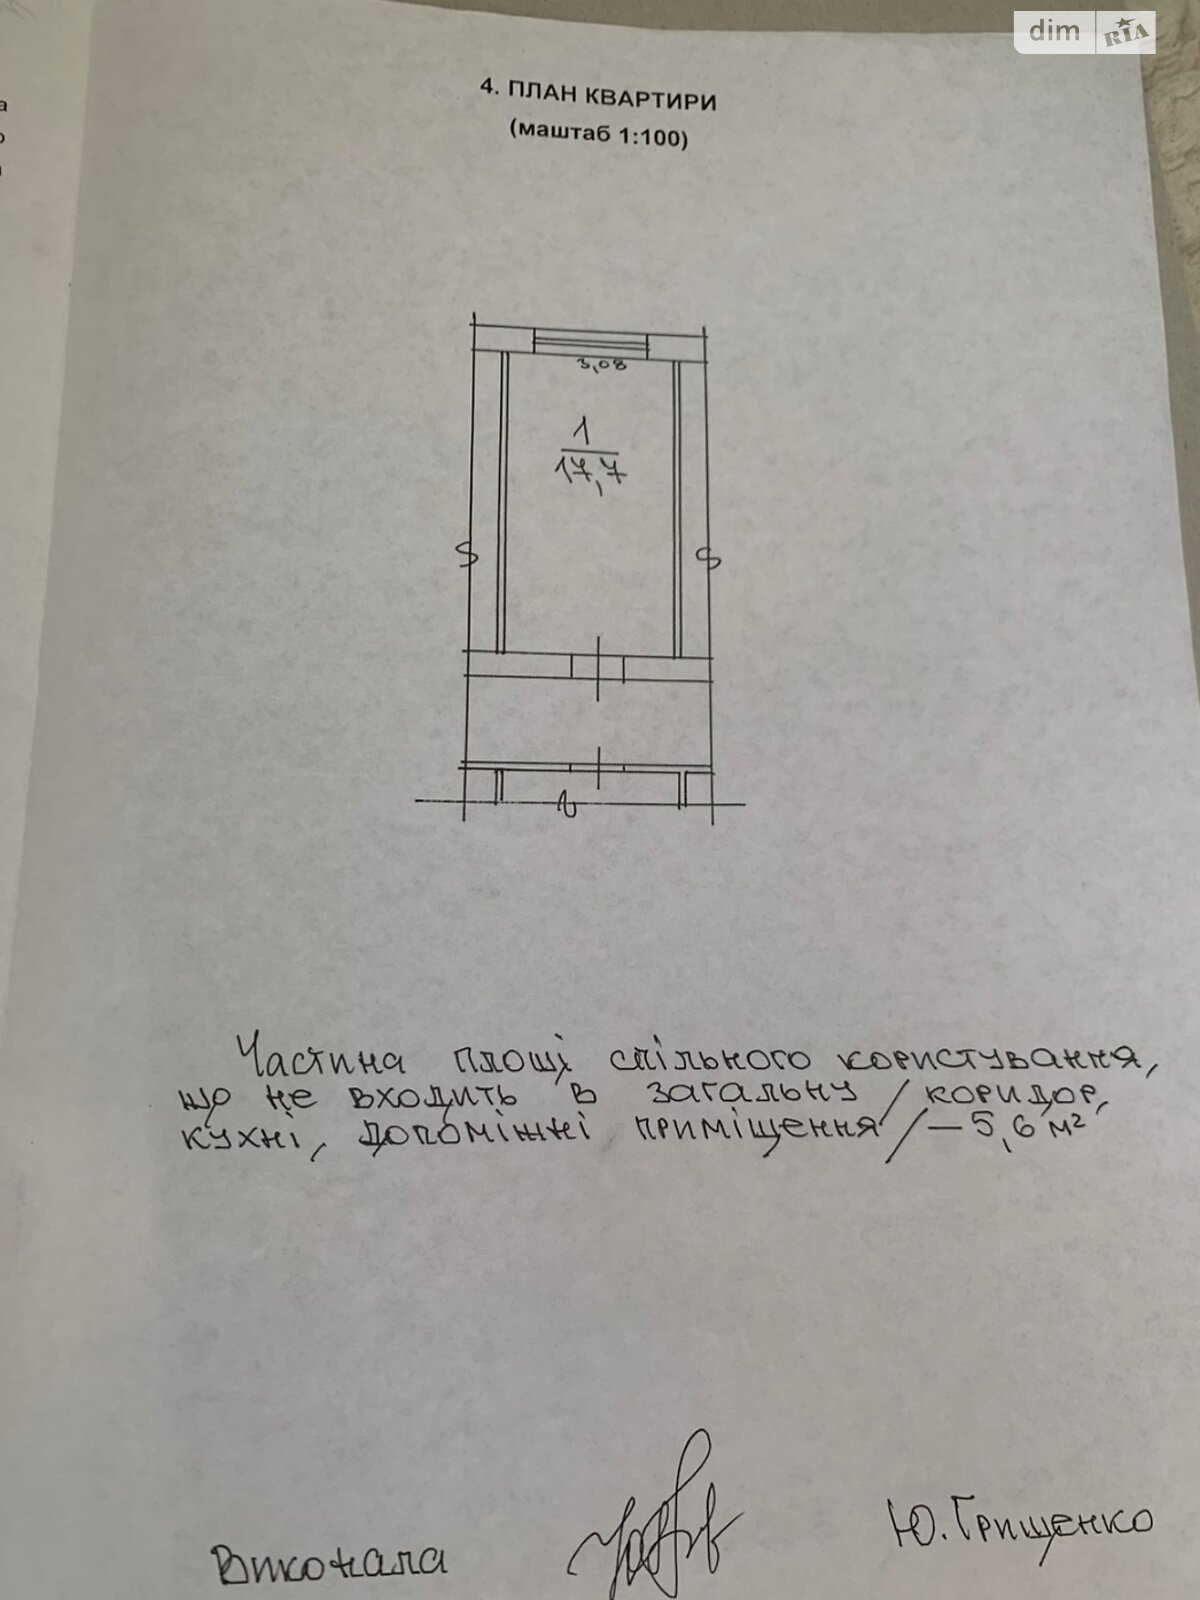 dim RIA
а
о
4. ПЛАН КВАРТИРИ
(маштаб 1:100)
3,08
1
17,7
Частина площі спільного користування,
що не входить в загальну / коридор,
кухні, допоміжні приміщення / – 5,6 м²
Виконала
Ю. Грищенко